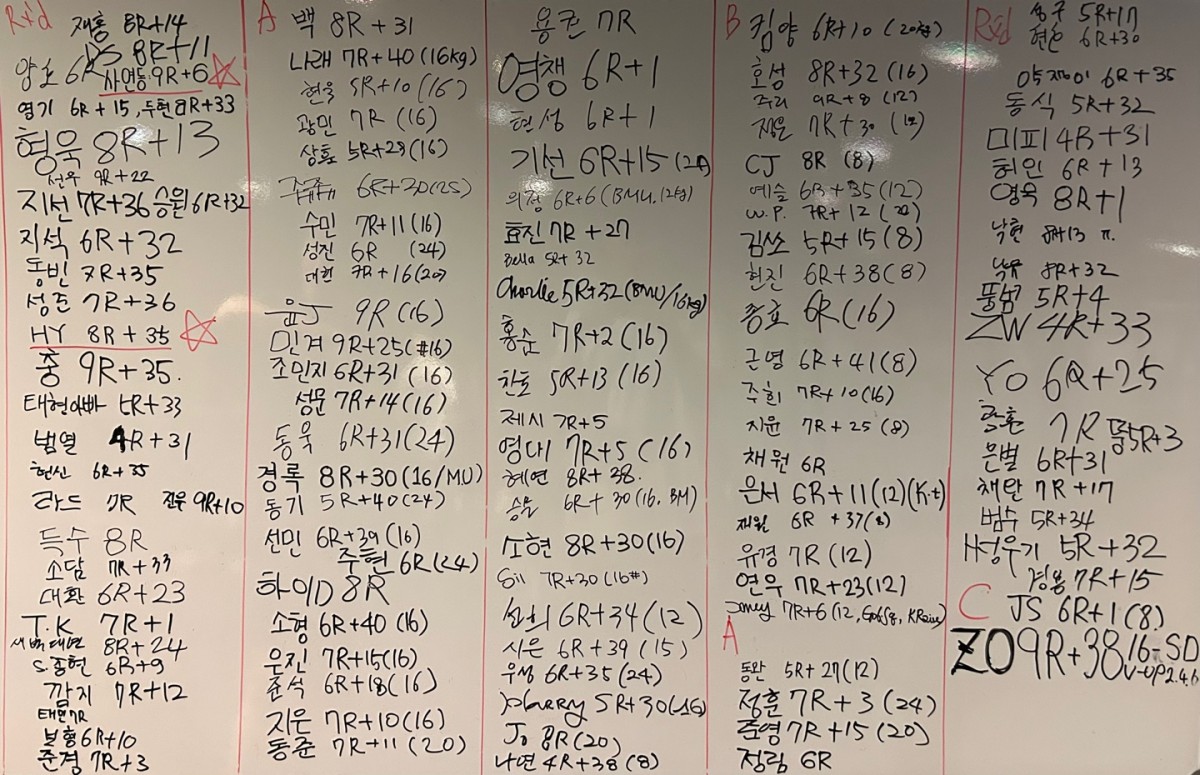 Rx'd
재홍 8R+14
DS 8R+11
양호 6R
사연동 9R+6
영기 6R+15, 두현 8R+33
형욱 8R+13
선우 9R+22
지선 7R+36 승원 6R+32
지석 6R+32
동빈 7R+35
성준 7R+36
HY 8R+35
중 9R+35.
태현아빠 5R+33
범열 4R+31
현신 6R+35
라드 7R 진우 9R+10
득수 8R
소담 7R+33
대환 6R+23
T.K 7R+1
새벽대현 8R+24
S.종현 6R+9
깜지 7R+12
태현 7R
보형 6R+10
준경 7R+3
A
백 8R+31
나래 7R+40 (16kg)
현욱 5R+10 (16)
광민 7R (16)
상호 5R+28 (16)
6R+30 (25)
수민 7R+11 (16)
성진 6R (24)
대환 7R+16 (20)
윤J 9R (16)
민겨 9R+25 (#16)
조민지 6R+31 (16)
성문 7R+14 (16)
동욱 6R+31 (24)
경록 8R+30 (16/MU)
동기 5R+40 (24)
선민 6R+39 (16)
주현 6R (24)
하이D 8R
소형 6R+40 (16)
우진 7R+15 (16)
준석 6R+18 (16)
지운 7R+10 (16)
동준 7R+11 (20)
용근 7R
영쟁 6R+1
현성 6R+1
기선 6R+15
의정 6R+6 (BMU.
효진 7R+27
Bella 5R+32
Charlie 5R+32 (BMU/16kg)
홍순 7R+2 (16)
찬호 5R+13 (16)
제시 7R+5
영대 7R+5 (16)
혜연 8R+38.
승훈 6R+30 (16. BM)
소현 8R+30 (16)
Eil 7R+30 (16#)
6R+34 (12)
시은 6R+39 (15)
우성 6R+35 (24)
5R+30
Jo 8R (20)
나연 4R+38 (8)
B
킴양 6R+10
호성 8R+32 (16)
주리 9R+8 (12)
정운 7R+30
CJ 8R (8)
예슬 6R+35 (12)
W.P. 7R+12
김쏘 5R+15 (8)
현진 6R+38 (8)
종호 6R (16)
근영 6R+41 (8)
주희 7R+10 (16)
지윤 7R+25 (8)
채원 6R
은서 6R+11 (12) (K.t)
재원 6R+37 (8)
유경 7R (12)
연우 7R+23 (12)
7R+6 (12,
A
동완 5R+27 (12)
정훈 7R+3 (24)
준영 7R+15 (20)
정림 6R
Rx'd
송구 5R+17
현은 6R+30
6R+35
동식 5R+32
미피 4R+31
허인 6R+13
영욱 8R+1
낙현 8R+13
8R+32
풍성 5R+4
ZW 4R+33
YO 6R+25
7R
5R+3
은별 6R+31
채만 7R+17
범수 5R+34
5R+32
경용 7R+15
C
JS 6R+1 (8)
ZO 9R+38 16-SD
V-UP 2.4.6